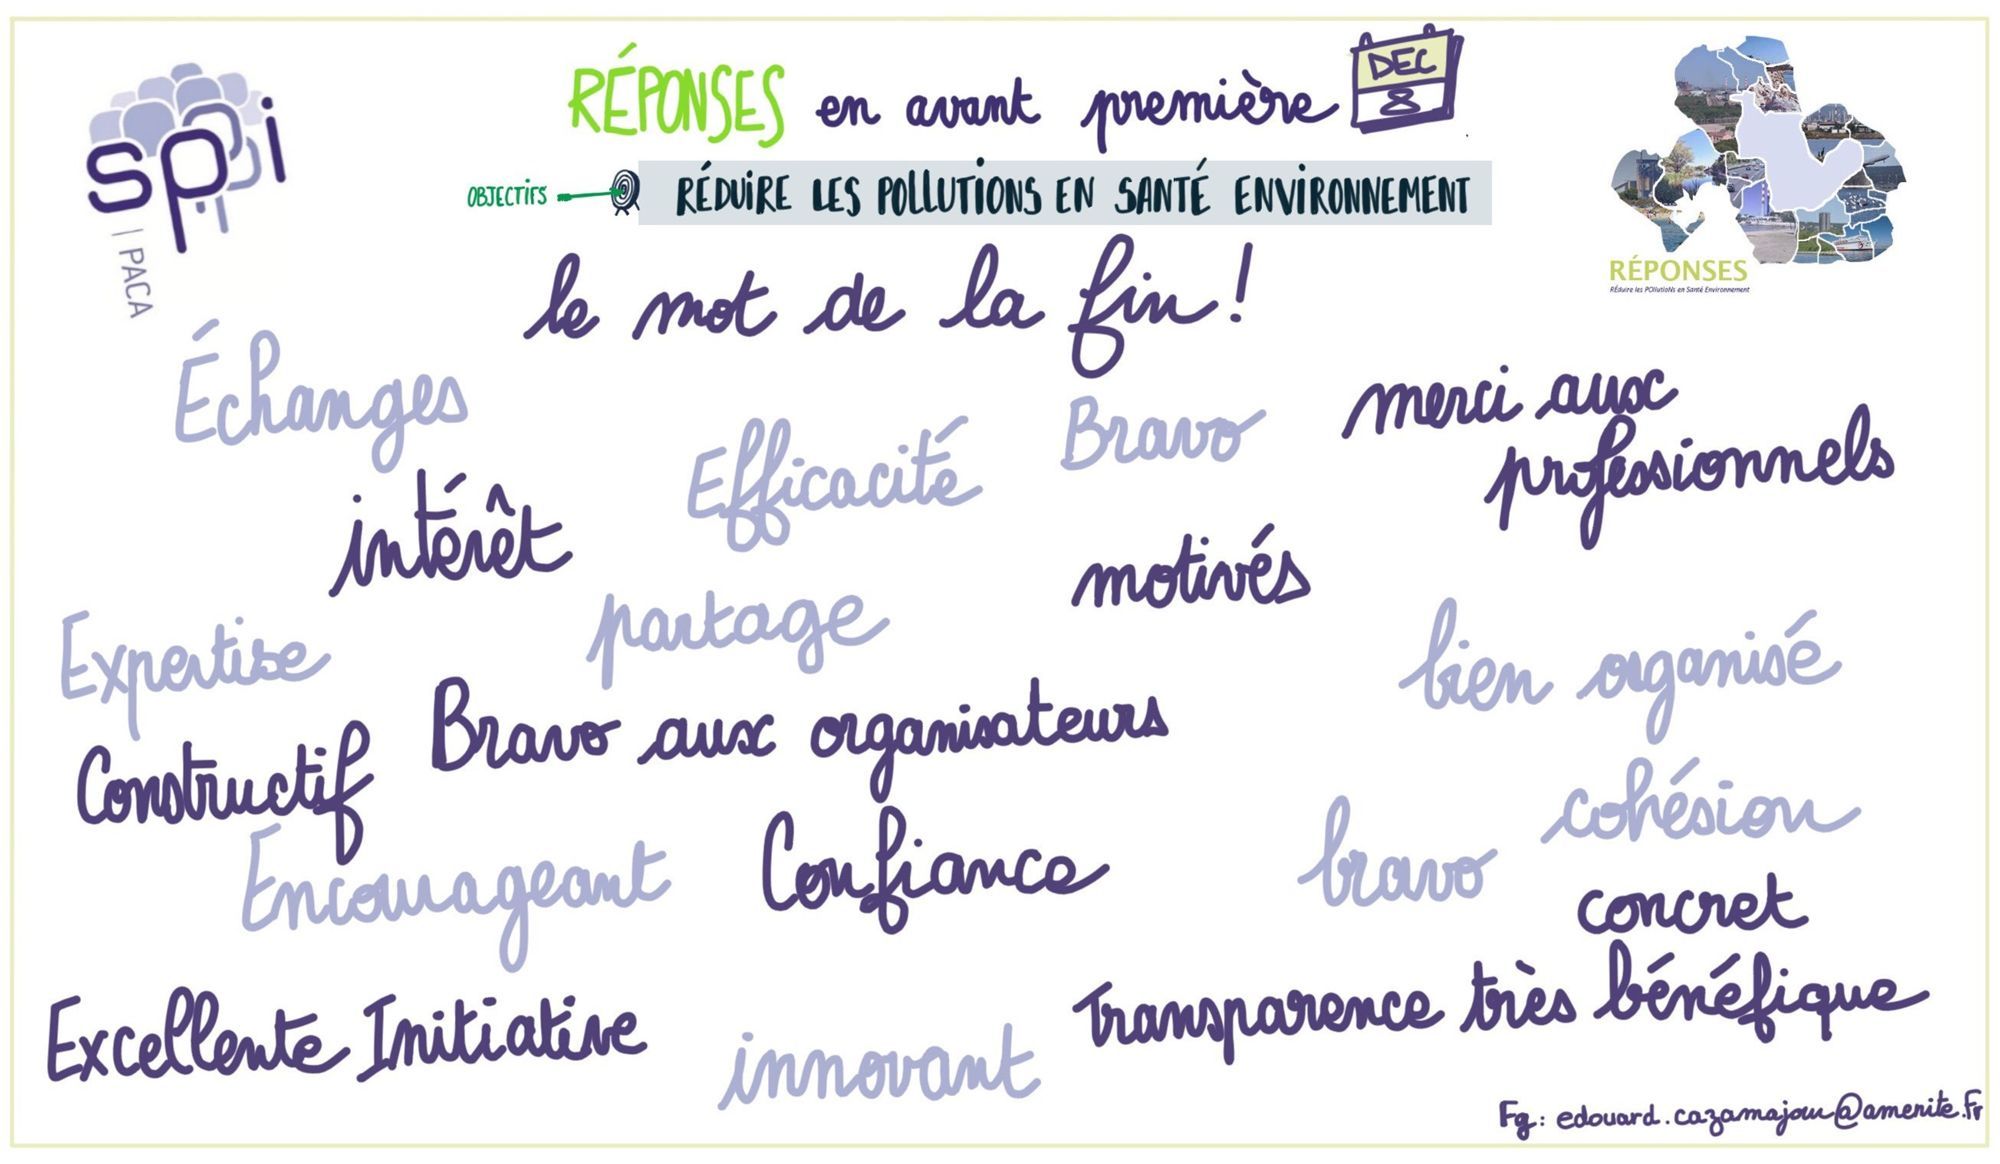 spi
| PACA
RÉPONSES en avant première
DEC
8
OBJECTIFS
RÉDUIRE LES POLLUTIONS EN SANTÉ ENVIRONNEMENT
RÉPONSES
RÉduire les POllutioNs en Santé Environnement
le mot de la fin !
Échanges
Efficacité
Bravo
merci aux
professionnels
intérêt
motivés
Expertise
partage
bien organisé
Constructif
Bravo aux organisateurs
cohésion
Encourageant
Confiance
bravo
concret
Excellente Initiative
innovant
Transparence très bénéfique
Fg : edouard.cazamajou@amenite.fr